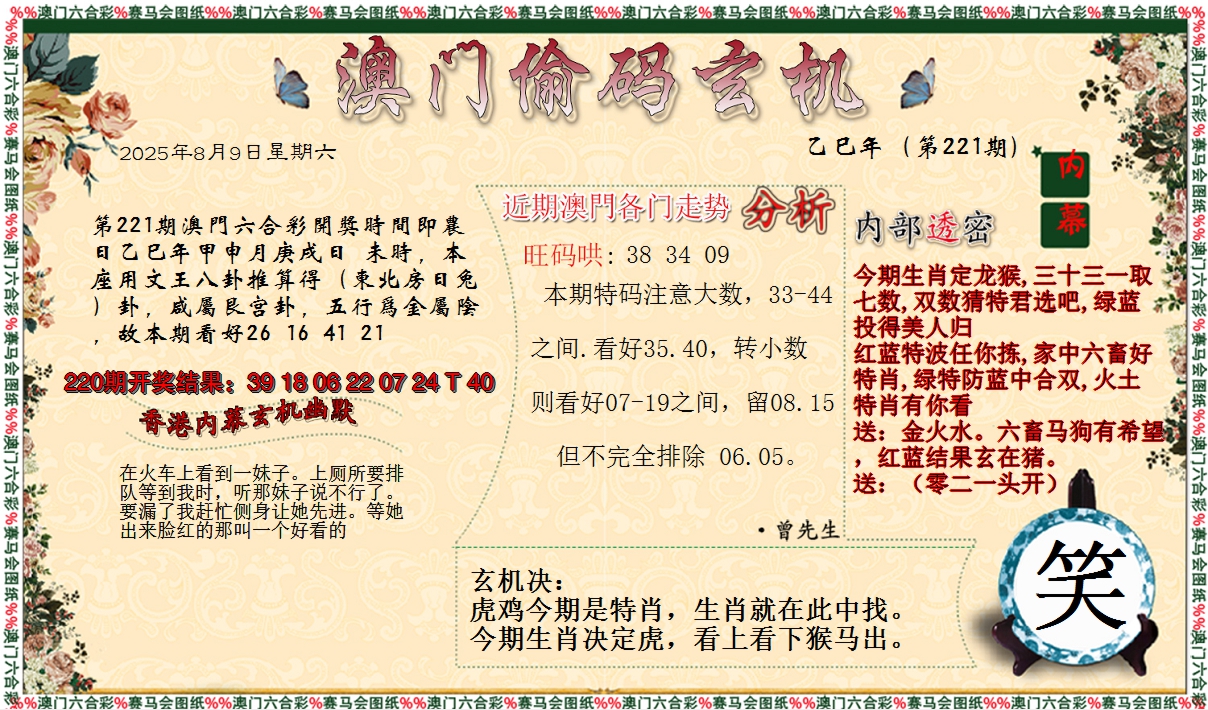 %%澳门六合彩%赛马会图纸%%澳门六合彩%赛马会图纸%%澳门六合彩%赛马会图纸%%澳门六合彩%赛马会图纸%%澳门六合彩%赛马会图纸%%澳门六合彩%赛马会图纸%%
澳门偷码玄机
2025年8月9日星期六
乙巳年（第221期）
内
幕
第221期澳門六合彩開獎時間即農
日乙巳年甲申月庚戌日 未時，本
座用文王八卦推算得（東北房日兔
）卦，咸屬艮宫卦，五行爲金屬陰
，故本期看好26 16 41 21
220期开奖结果：39 18 06 22 07 24 T 40
香港内幕玄机幽默
在火车上看到一妹子。上厕所要排
队等到我时，听那妹子说不行了。
要漏了我赶忙侧身让她先进。等她
出来脸红的那叫一个好看的
近期澳門各门走势 分析
旺码哄: 38 34 09
本期特码注意大数，33-44
之间.看好35.40，转小数
则看好07-19之间，留08.15
但不完全排除 06.05。
·曾先生
内部透密
今期生肖定龙猴,三十三一取
七数,双数猜特君选吧,绿蓝
投得美人归
红蓝特波任你拣,家中六畜好
特肖,绿特防蓝中合双,火土
特肖有你看
送：金火水。六畜马狗有希望
，红蓝结果玄在猪。
送：（零二一头开）
玄机决：
虎鸡今期是特肖，生肖就在此中找。
今期生肖决定虎，看上看下猴马出。
笑
%%澳门六合彩%赛马会图纸%%澳门六合彩%赛马会图纸%%澳门六合彩%赛马会图纸%%澳门六合彩%赛马会图纸%%澳门六合彩%赛马会图纸%%澳门六合彩%赛马会图纸%%